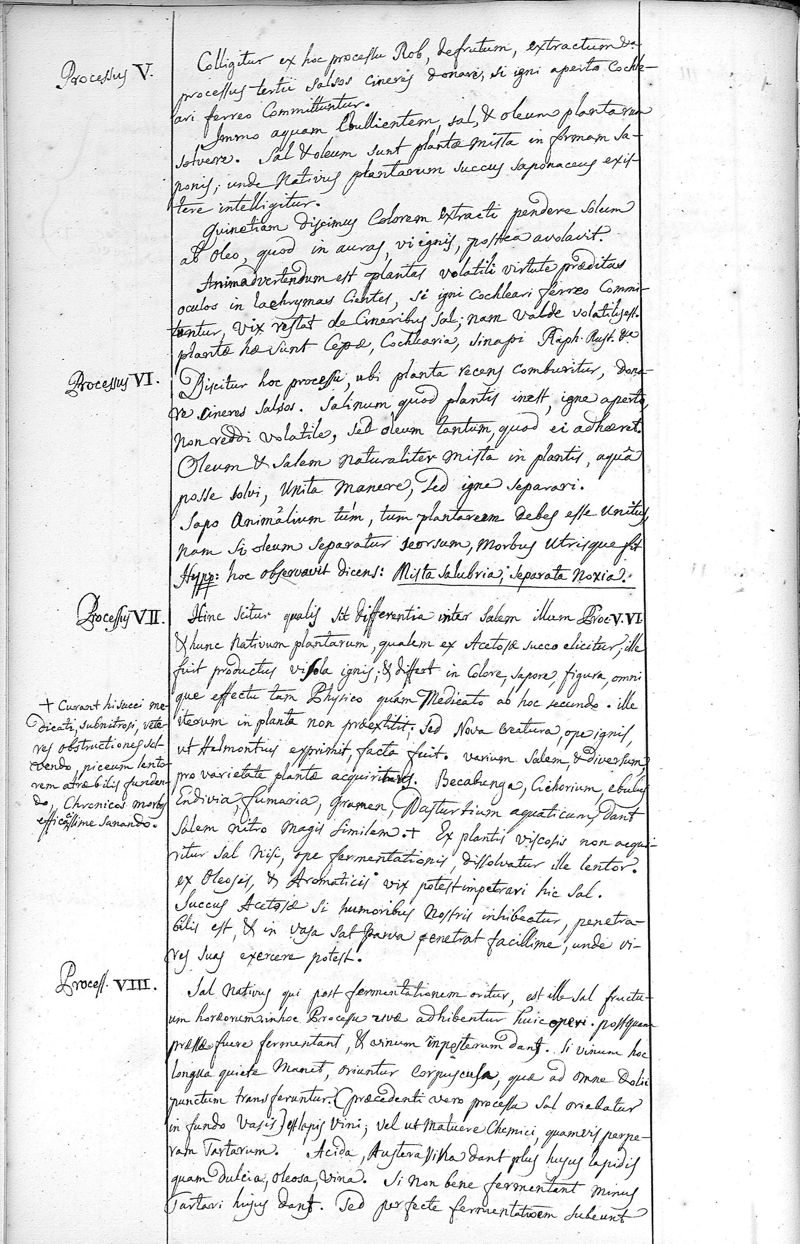 Processus V.
Colligitur ex hoc processu Rob, defrutum, extractum &a
processus tertii salsos cineres donare, si igni aperto Cochle-
ari ferreo Committuntur.
Immo aquam Ebullientem, sal, & oleum plantarum
solvere. Sal & oleum sunt plantæ mista in formam Sa-
ponis; unde Nativus plantarum succus saponaceus exis-
tere intelligitur.
Quinetiam discimus Colorem extracti pendere solum
ab oleo, quod in auras, vi ignis, postea avolavit.
Animadvertendum est plantas volatili virtute præditas
oculos in lachrymas Cientes, si igni cochleari ferreo Commi-
tuntur, vix restat de Cineribus sal; nam valde volatilis est.
plantæ hæ sunt Cepæ, Cochlearia, sinapi Raph. Rust. &a
Processus VI.
Discitur hoc processu, ubi planta recens comburitur, dona-
re cineres salsos. Salinum quod plantis inest, igne aperto,
non reddi volatile, sed oleum tantum, quod ei adhæret.
Oleum & Salem naturaliter mista in plantis, aquâ
posse solvi, Unita Manere, Sed igne separari.
Sapo Animalium tum, tum plantarum debet esse Unitus,
nam si oleum separatur seorsum, Morbus Utrisque fit.
Hypp: hoc observavit dicens: Mista salubria, separata Noxia.
Processus VII.
Hinc scitur qualis sit differentia inter Salem illum Proc V. VI
& hunc Nativum plantarum, qualem ex Acetosæ succo elicitur; ille
fuit productus vi sola ignis; & differt in Colore, sapore, figura, omni
que effectu tam Physico quam Medicato ab hoc secundo. ille
iterum in planta non præextitit; Sed Nova Creatura, ope ignis,
ut Helmontius exprimit, facta fuit. varium Salem, & diversum,
pro varietate plantæ acquiritur. Becabunga, Cichorium, ebulus
Endivia, fumaria, gramen, Nasturtium aquaticum, dant
Salem nitro magis similem. + Ex plantis viscosis non acqui-
ritur sal nisi, ope fermentationis, dissolvatur ille lentor.
ex oleosis, & Aromaticis vix potest impetrari hic Sal.
Succus Acetosæ si humoribus Nostris inhibeatur, penetra-
bilis est, & in vasa sat parva penetrat facillime, unde vi-
res suas exercere potest.
+ Curant hi succi me-
dicati, subnitrosi, vete-
res obstructiones sol-
vendo, piceum lento-
rem atræbilis funden-
do, Chronicos morbos
efficacissime sanando.
Process. VIII.
Sal Nativus qui post fermentationem oritur, est ille sal fructu-
um horæorum. in hoc Processu uvæ adhibentur huic operi. postquam
pressæ fuere fermentant, & vinum dant. Si vinum hoc
longua quiete Manet, oriuntur Corpuscula, quæ ad omne Dolii
punctum transferuntur. (præcedenti vero processu sal oriebatur
in fundo vasis) est lapis vini; vel ut maluere Chemici, quamvis perpe-
ram Tartarum. Acida, Austera Vina dant plus hujus lapidis
quam dulcia, oleosa, vina. Si non bene fermentant minus
Tartari hujus dant. Sed perfecte fermentationem subeunt